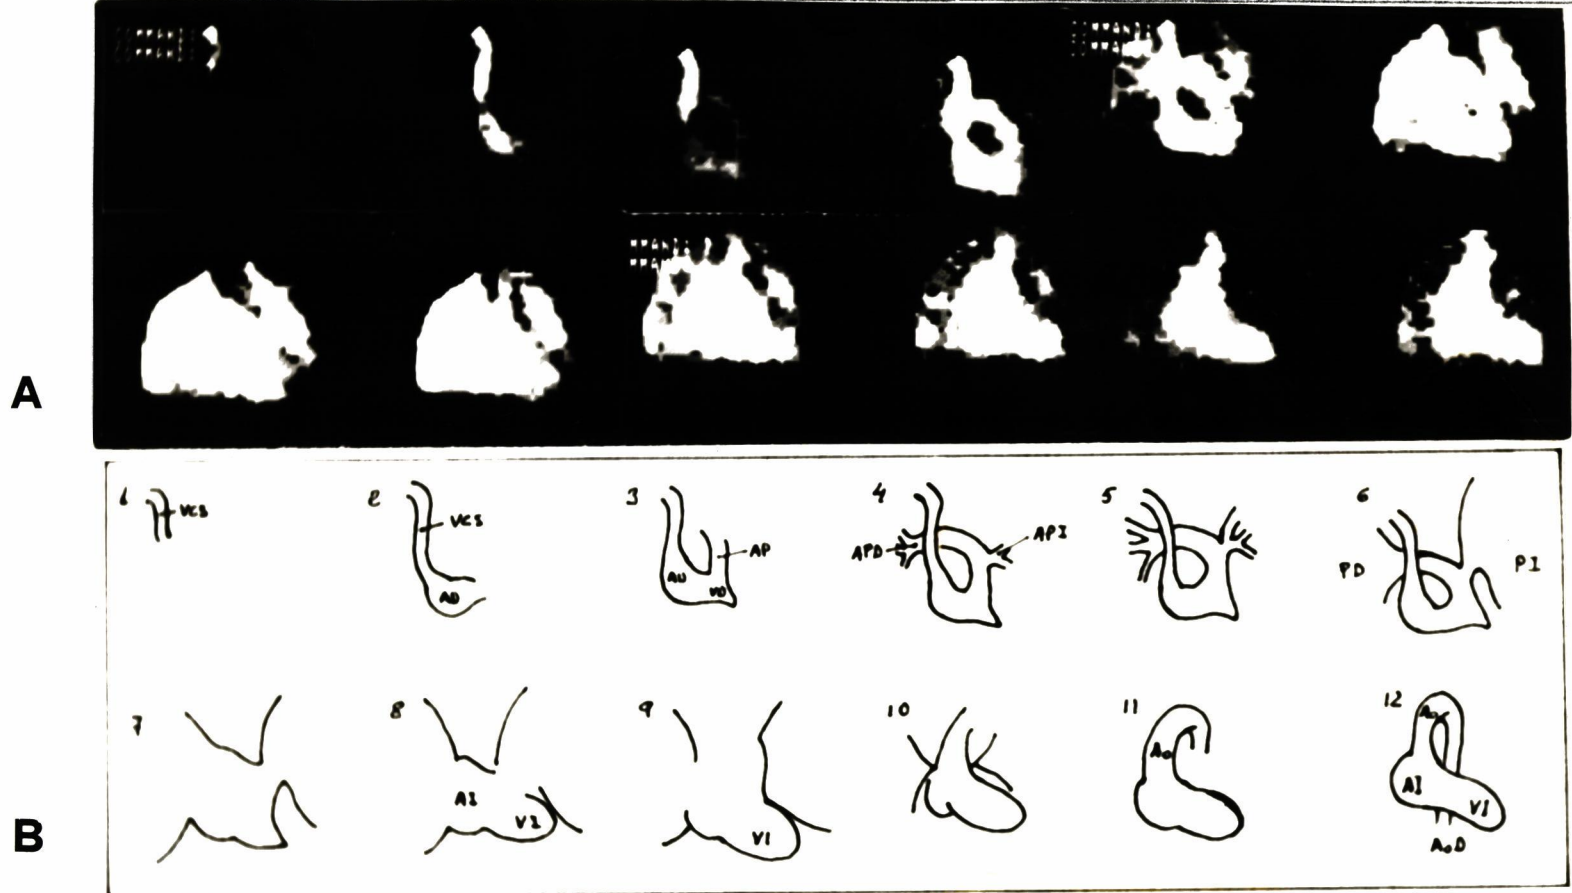 A
1 VCS
2 VCS
AD
3 AP
AD
VD
4 APD API
5
6
PD PI
7
8
AI
VI
9
VI
10
11
Ao
12
Ao
AI
VI
AoD
B